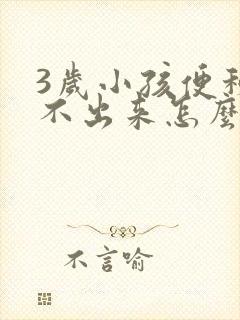 3歲小孩便
不出来怎麼
不言喻